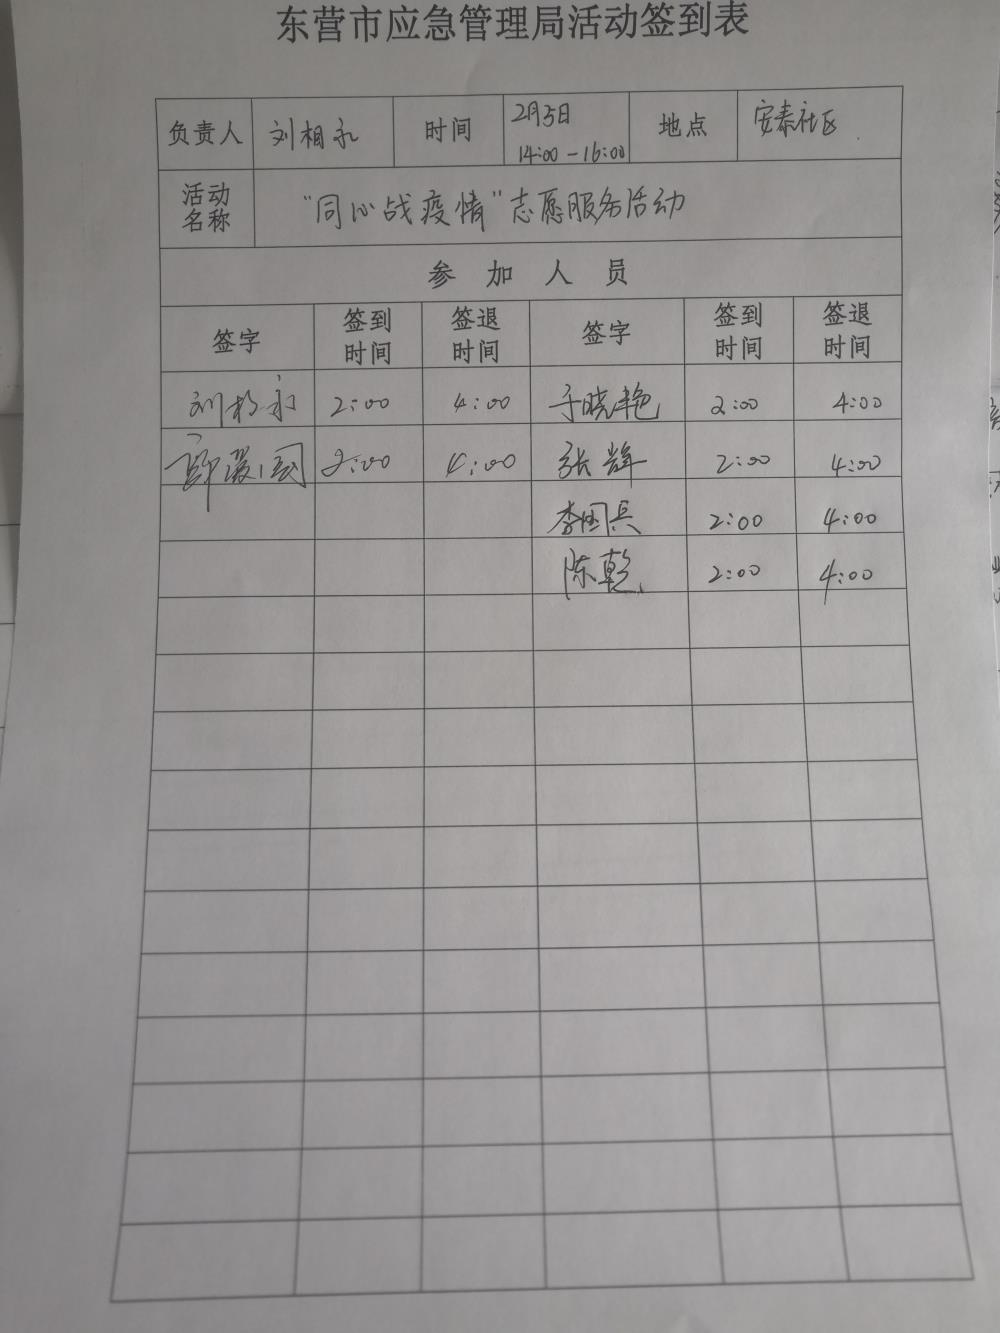 东营市应急管理局活动签到表
负责人 刘相永 时间 2月5日 14:00-16:00 地点 安泰社区
活动名称 "同心战疫情"志愿服务活动
参加人员
签字 签到时间 签退时间 签字 签到时间 签退时间
刘相永 2:00 4:00 于晓艳 2:00 4:00
2:00 4:00 张辉 2:00 4:00
李国兵 2:00 4:00
陈乾 2:00 4:00